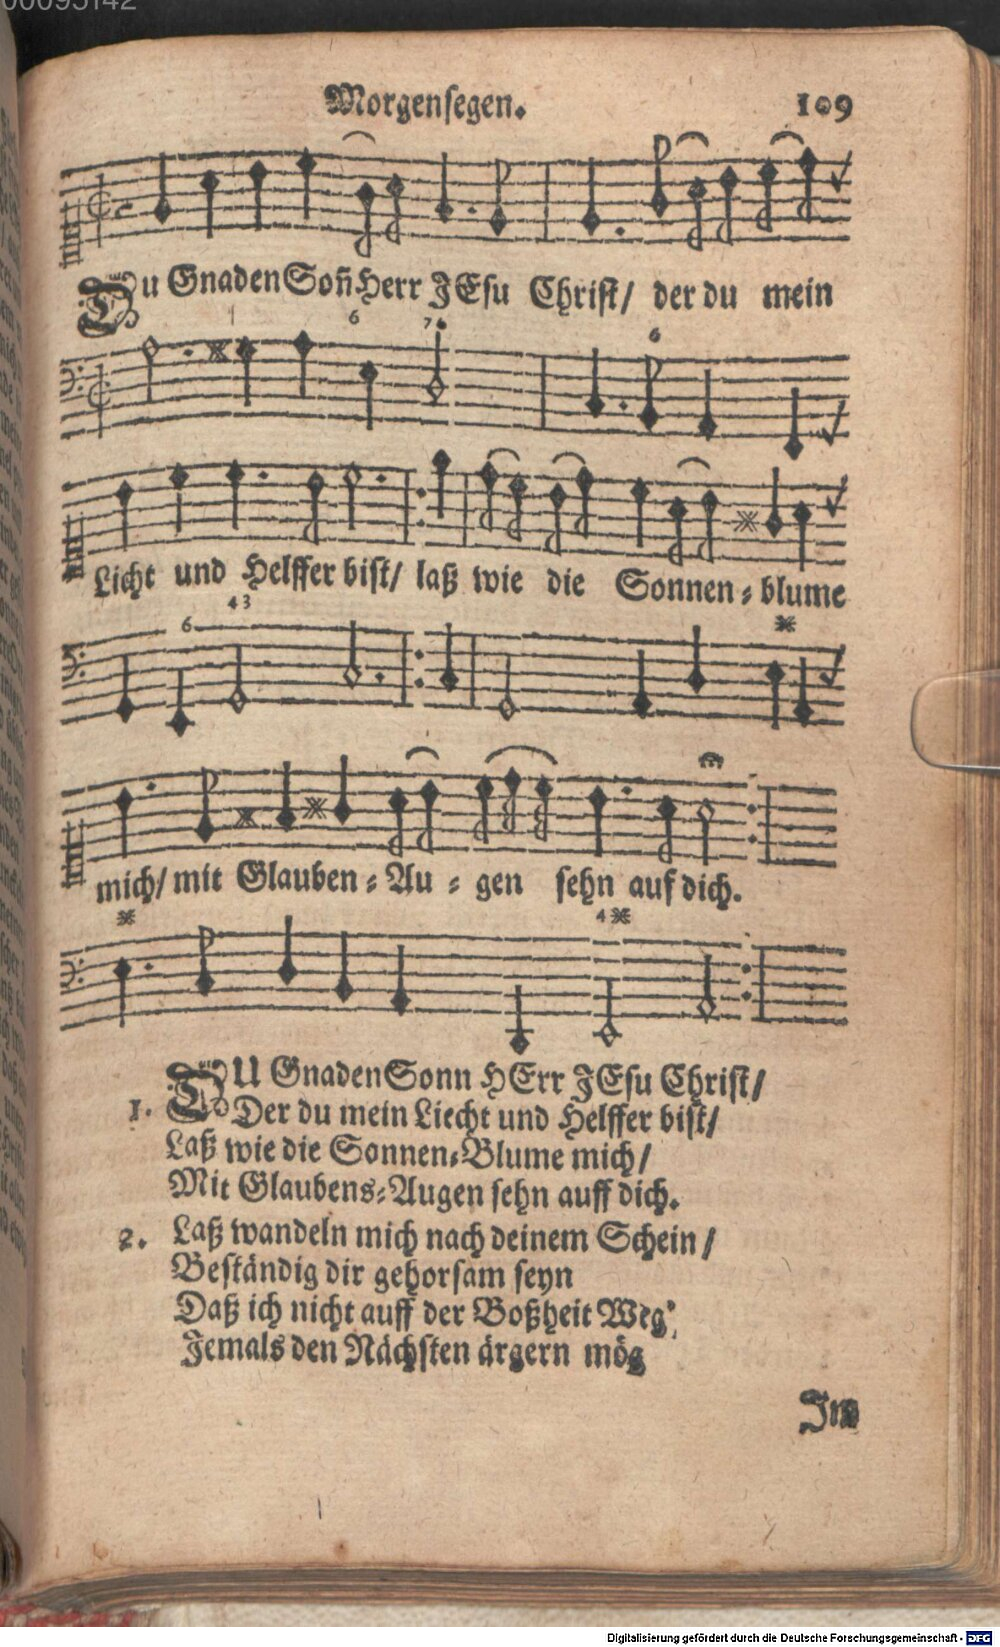 00095142
Morgensegen. 109
DU GnadenSoñ Herr JEsu Christ/ der du mein
6 7 6
Licht und Helffer bist/ laß wie die Sonnen-blume
6 4 3
mich/ mit Glauben-Au-gen sehn auf dich.
4
DU GnadenSonn HErr JEsu Christ/
1. Der du mein Liecht und Helffer bist/
Laß wie die Sonnen-Blume mich/
Mit Glaubens-Augen sehn auff dich.
2. Laß wandeln mich nach deinem Schein/
Beständig dir gehorsam seyn
Daß ich nicht auff der Boßheit Weg
Jemals den Nächsten ärgern mög
Im
Digitalisierung gefördert durch die Deutsche Forschungsgemeinschaft - DFG